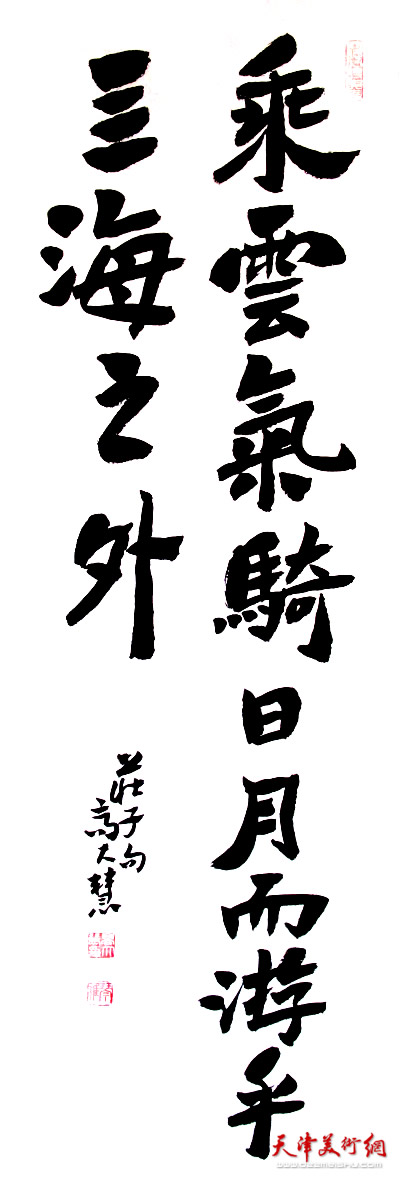 乘雲氣騎日月而游乎
三海之外
莊子句
高大慧
天津美術網